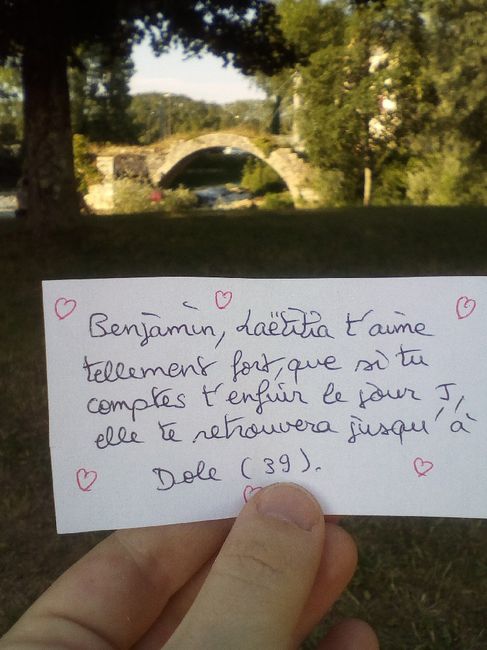 Benjamin, Laëtitia t'aime
tellement fort, que si tu
comptes t'enfuir le jour J,
elle te retrouvera jusqu'à
Dole (39).